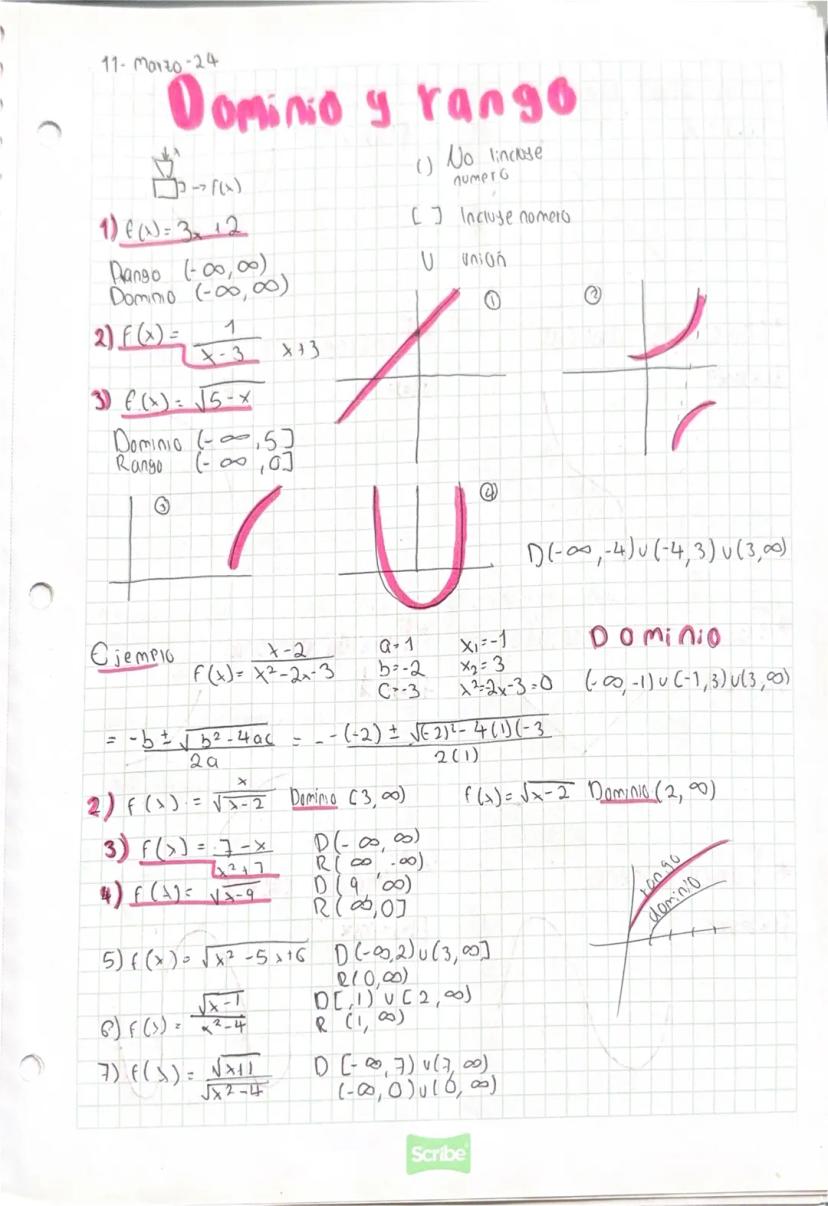 11-Marzo-24
Dominio y rango
x
→ f(x)
( ) No lincluse
numero
[ ] Incluye nomero
U unión
1) f(x) = 3x + 2
Rango (-∞, ∞)
Dominio (-∞, ∞)
2) f(x) = 1 / x - 3 x + 3
3) f(x) = √5-x
Dominio (-∞, 5]
Rango (-∞, 0]
①
②
③
④
D(-∞, -4) ∪ (-4, 3) ∪ (3, ∞)
Ejemplo
f(x) = x-2 / x² - 2x - 3
a=1
b=-2
C=-3
x₁=-1
x₂=3
x²-2x-3=0
Dominio
(-∞, -1) ∪ (-1, 3) ∪ (3, ∞)
= -b ± √b² - 4ac / 2a = - -(-2) ± √(-2)² - 4(1)(-3 / 2(1)
2) f(x) = x / √x-2 Dominio (3, ∞) f(x) = √x-2 Dominio (2, ∞)
3) f(x) = 7-x / x²+7 D(-∞, ∞)
R(∞, -∞)
4) f(x) = √x-9 D(9, ∞)
R(∞, 0]
rango
dominio
5) f(x) = √x² - 5x+6 D(-∞, 2) ∪ (3, ∞]
R(0, ∞)
6) f(x) = √x-1 / x²-4 D[, 1) ∪ [2, ∞)
R (1, ∞)
7) f(x) = √x+1 / √x²-4 D [-∞, 7) ∪ (7, ∞)
(-∞, 0) ∪ (0, ∞)
Scribe